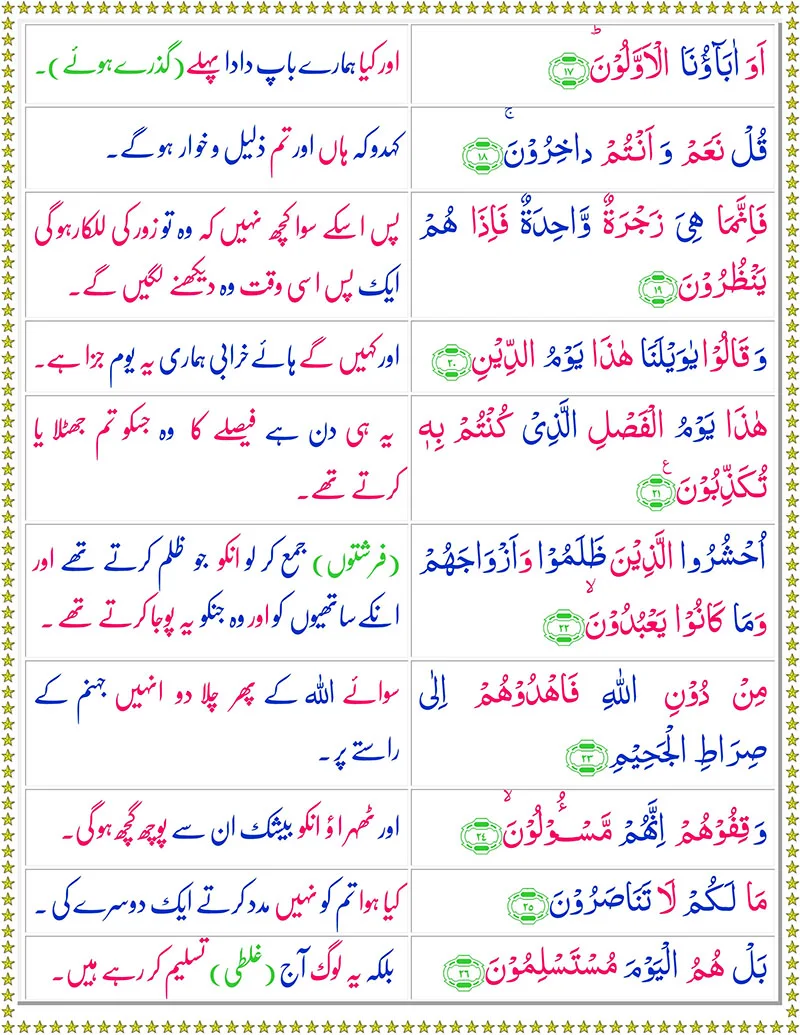 اَوَ اٰبَآؤُنَا الْاَوَّلُوْنَؕ ۝۱۷
اور کیا ہمارے باپ دادا پہلے (گذرے ہوئے)۔
قُلْ نَعَمْ وَ اَنْتُمْ دَاخِرُوْنَۚ ۝۱۸
کہدو کہ ہاں اور تم ذلیل و خوار ہوگے۔
فَاِنَّمَا هِیَ زَجْرَةٌ وَّاحِدَةٌ فَاِذَا هُمْ
یَنْظُرُوْنَ ۝۱۹
پس اسکے سوا کچھ نہیں کہ وہ تو زور کی للکار ہوگی
ایک پس اسی وقت وہ دیکھنے لگیں گے۔
وَ قَالُوْا یٰوَیْلَنَا هٰذَا یَوْمُ الدِّیْنِ ۝۲۰
اور کہیں گے ہائے خرابی ہماری یہ یوم جزا ہے۔
هٰذَا یَوْمُ الْفَصْلِ الَّذِیْ كُنْتُمْ بِهٖ
تُكَذِّبُوْنَ۠ ۝۲۱ ع
یہ ہی دن ہے فیصلے کا وہ جسکو تم جھٹلا یا
کرتے تھے۔
اُحْشُرُوا الَّذِیْنَ ظَلَمُوْا وَاَزْوَاجَهُمْ
وَمَا كَانُوْا یَعْبُدُوْنَۙ ۝۲۲
(فرشتوں) جمع کر لو انکو جو ظلم کرتے تھے اور
انکے ساتھیوں کو اور وہ جنکو یہ پوجا کرتے تھے۔
مِنْ دُوْنِ اللّٰهِ فَاهْدُوْهُمْ اِلٰی
صِرَاطِ الْجَحِیْمِ ۝۲۳
سوائے اللہ کے پھر چلا دو انہیں جہنم کے
راستے پر۔
وَ قِفُوْهُمْ اِنَّهُمْ مَّسْـُٔوْلُوْنَۙ ۝۲۴
اور ٹھہراؤ انکو بیشک ان سے پوچھ گچھ ہوگی۔
مَا لَكُمْ لَا تَنَاصَرُوْنَ ۝۲۵
کیا ہوا تم کو نہیں مدد کرتے ایک دوسرے کی۔
بَلْ هُمُ الْیَوْمَ مُسْتَسْلِمُوْنَ ۝۲۶
بلکہ یہ لوگ آج (غلطی) تسلیم کر رہے ہیں۔